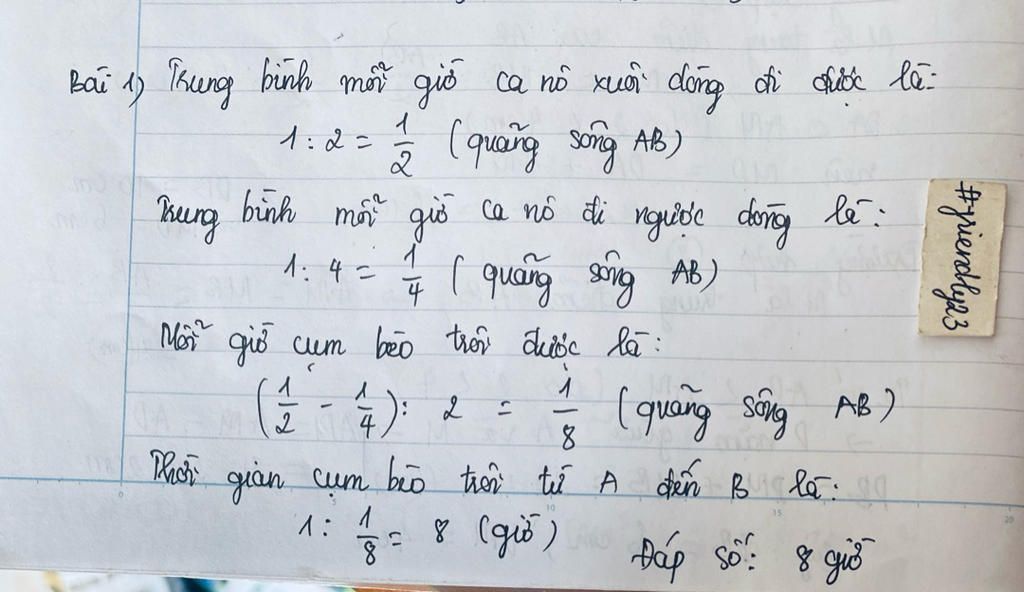 Bài 1) Trung bình mỗi giờ ca nô xuôi dòng đi được là:
1 : 2 = 1/2 (quãng sông AB)
Trung bình mỗi giờ ca nô đi ngược dòng là:
1 : 4 = 1/4 (quãng sông AB)
Mỗi giờ cụm bèo trôi được là:
(1/2 - 1/4) : 2 = 1/8 (quãng sông AB)
Thời gian cụm bèo trôi từ A đến B là:
1 : 1/8 = 8 (giờ)
Đáp số: 8 giờ
#friendly23